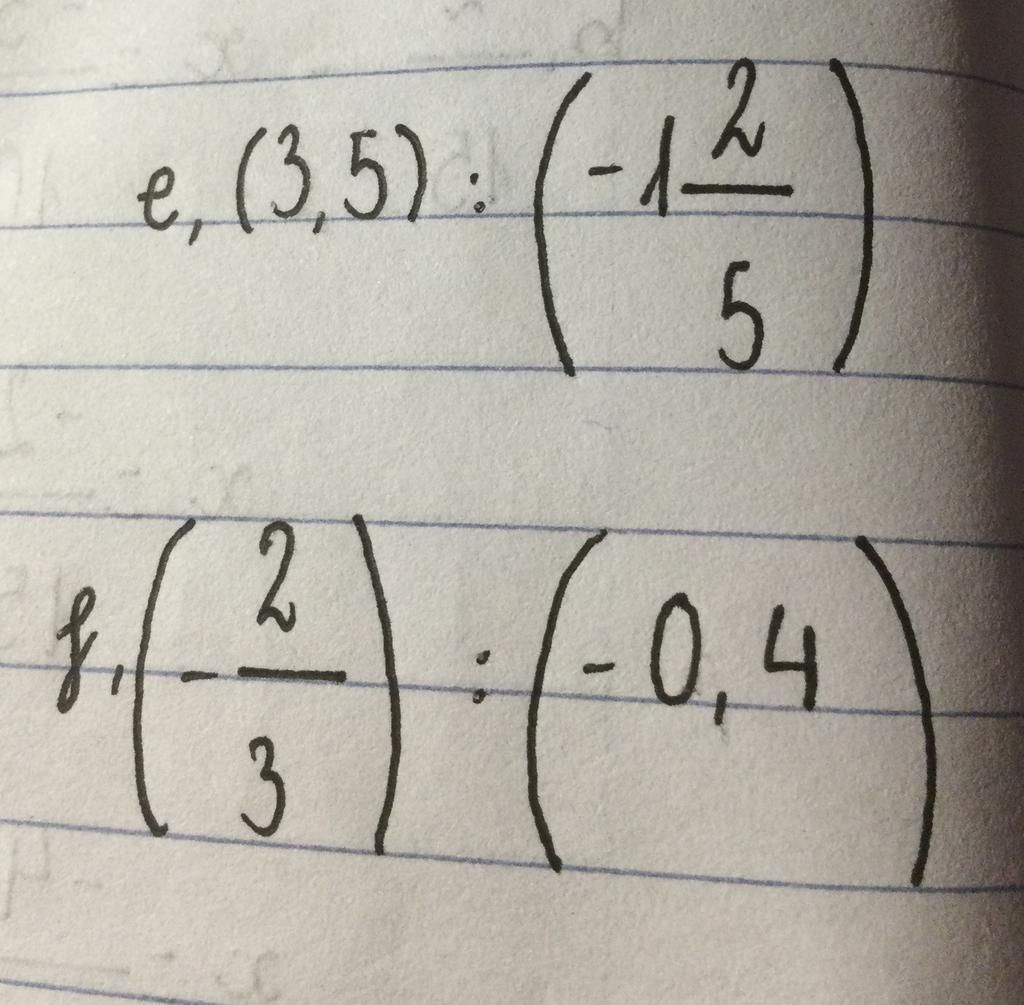 e, (3,5) : (-1 2/5)
f, (-2/3) : (-0,4)